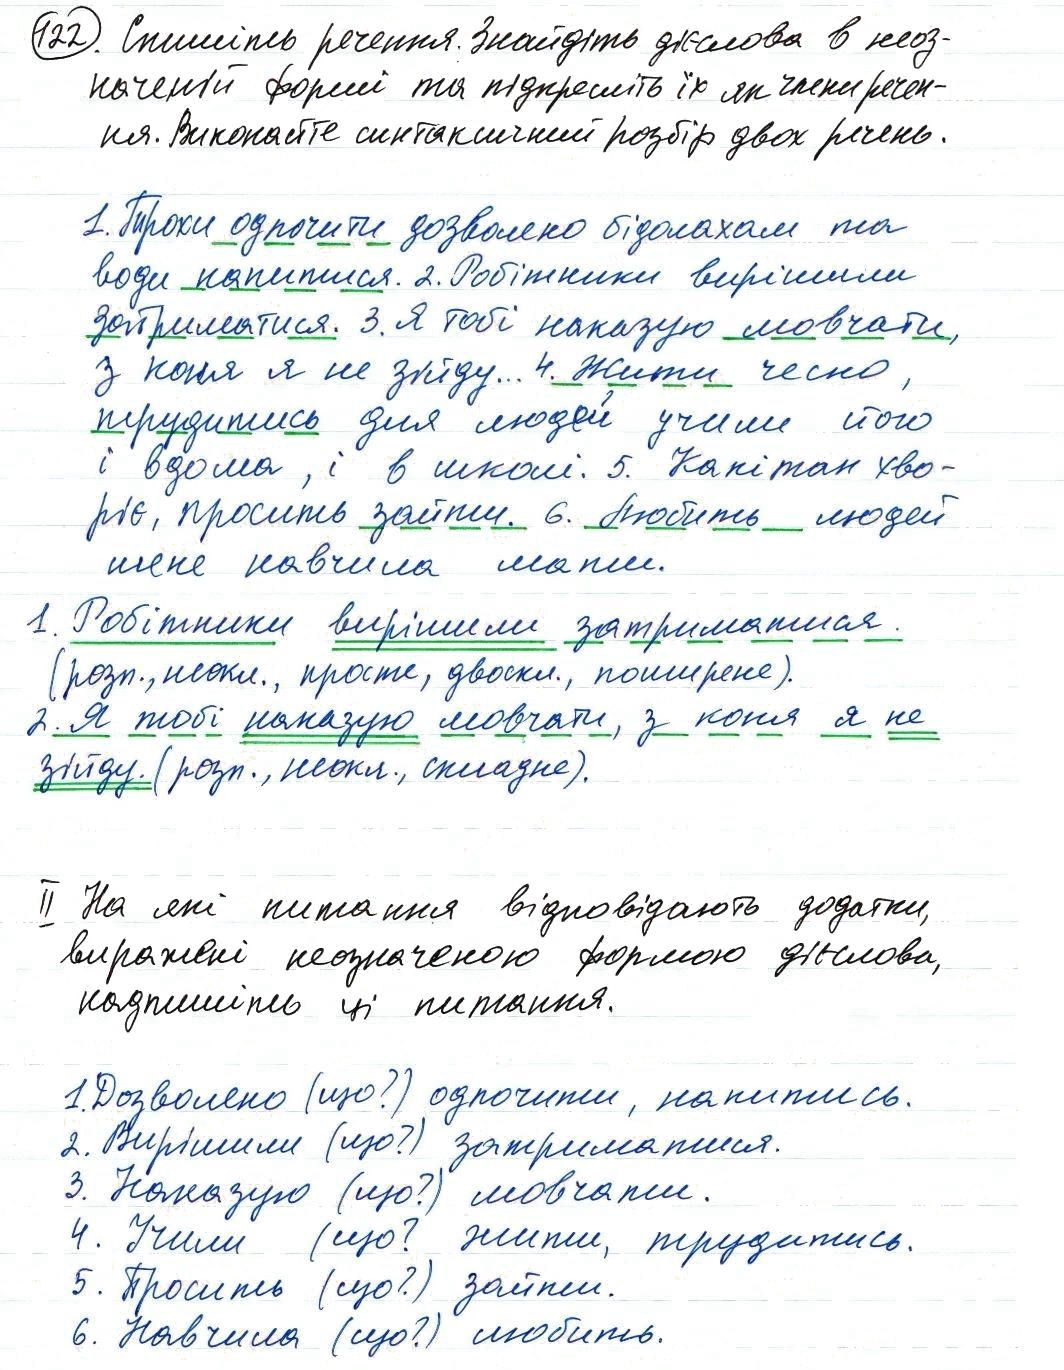 122. Спишіть речення. Знайдіть дієслова в неоз-
наченій формі та підкресліть їх як члени речен-
ня. Виконайте синтаксичний розбір двох речень.
1. Трохи одпочити дозволено бідолахам та
води напитися. 2. Робітники вирішили
затриматися. 3. Я тобі наказую мовчати,
з коня я не зійду... 4. Жити чесно,
трудитись для людей учили його
і вдома, і в школі. 5. Капітан хво-
ріє, просить зайти. 6. Любить людей
мене навчила мати.
1. Робітники вирішили затриматися.
(розп., неокл., просте, двоскл., поширене).
2. Я тобі наказую мовчати, з коня я не
зійду. (розп., неокл., складне).
II На які питання відповідають додатки,
виражені неозначеною формою дієслова,
надпишіть ці питання.
1. Дозволено (що?) одпочити, напитись.
2. Вирішили (що?) затриматися.
3. Наказую (що?) мовчати.
4. Учили (що? жити, трудитись.
5. Просить (що?) зайти.
6. Навчила (що?) любить.